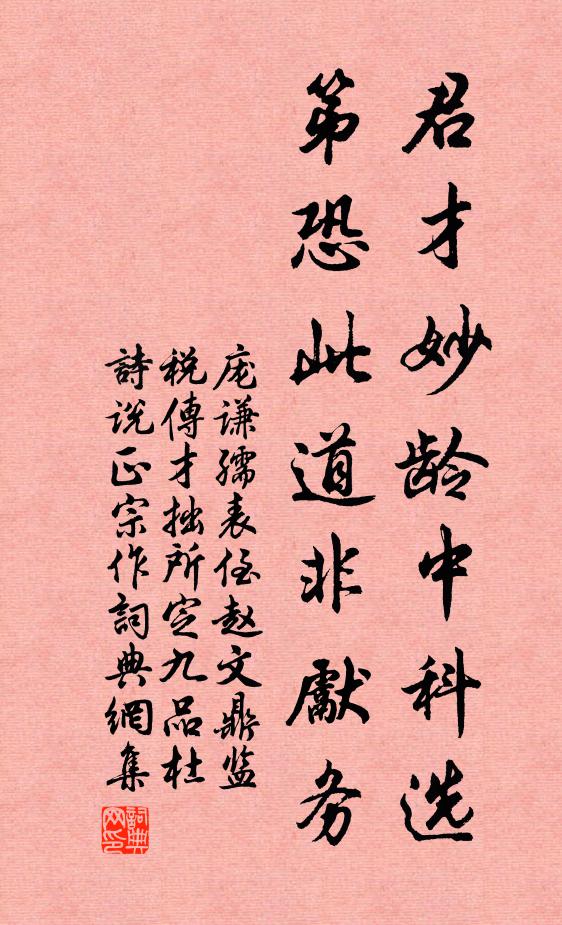 君才妙龄中科选
第恐此道非獻务
庞谦孺表侄赵文鼎监
税傳才拙所定九品杜
詩说正宗作詞典網集
詞典
网印